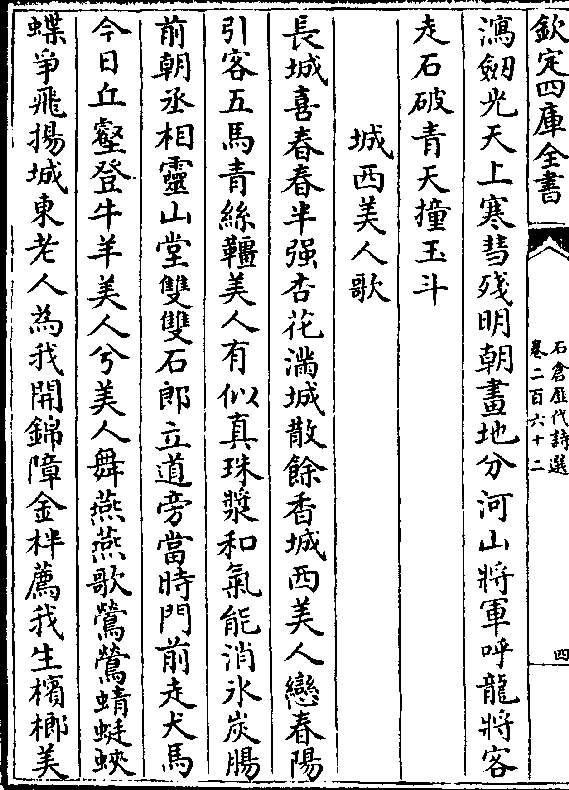 欽定四庫全書
石倉歷代詩選
卷二百六十二
四
瀉劒光天上寒彗殘明朝畫地分河山將軍呼龍將客
走石破青天撞玉斗
城西美人歌
長城喜春春半强杏花滿城散餘香城西美人戀春陽
引客五馬青絲韁美人有似真珠漿和氣能消氷炭腸
前朝丞相靈山堂雙雙石郎立道旁當時門前走犬馬
今日丘壑登牛羊美人兮美人舞燕燕歌鶯鶯蜻蜓蛺
蝶爭飛揚城東老人為我開錦障金柈薦我生檳榔美